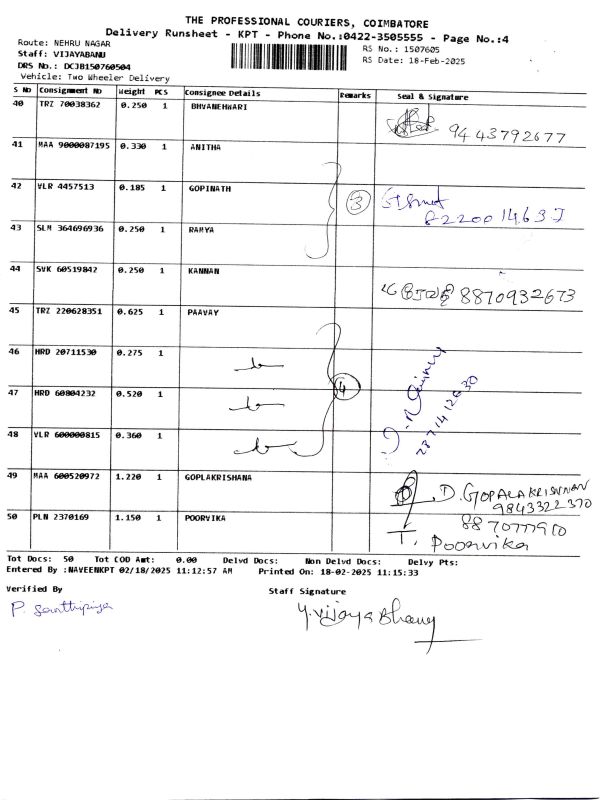 THE PROFESSIONAL COURIERS, COIMBATORE
Delivery Runsheet - KPT - Phone No.:0422-3505555 - Page No.:4
Route: NEHRU NAGAR
Staff: VIJAYABANU
DRS No.: DCJB150760504
Vehicle: Two Wheeler Delivery
RS No.: 1507605
RS Date: 18-Feb-2025
S No Consignment No Weight PCS Consignee Details Remarks Seal & Signature
40 TRZ 70038362 0.250 1 BHVANEHWARI 9443792677
41 MAA 9000087195 0.330 1 ANITHA
42 VLR 4457513 0.185 1 GOPINATH 3
8220014637
43 SLM 364696936 0.250 1 RAMYA
44 SVK 60519842 0.250 1 KANNAN 8870932673
45 TRZ 220628351 0.625 1 PAAVAY
46 HRD 20711530 0.275 1
47 HRD 60804232 0.520 1 4
48 VLR 600000815 0.360 1
49 MAA 600520972 1.220 1 GOPLAKRISHANA D. GOPALAKRISHNAN
9843322370
50 PLN 2370169 1.150 1 POORVIKA
T. Poorvika
Tot Docs: 50 Tot COD Amt: 0.00 Delvd Docs: Non Delvd Docs: Delvy Pts:
Entered By :NAVEENKPT 02/18/2025 11:12:57 AM Printed On: 18-02-2025 11:15:33
Verified By Staff Signature
P. Santhipriya Y. Vijaya Bhanu